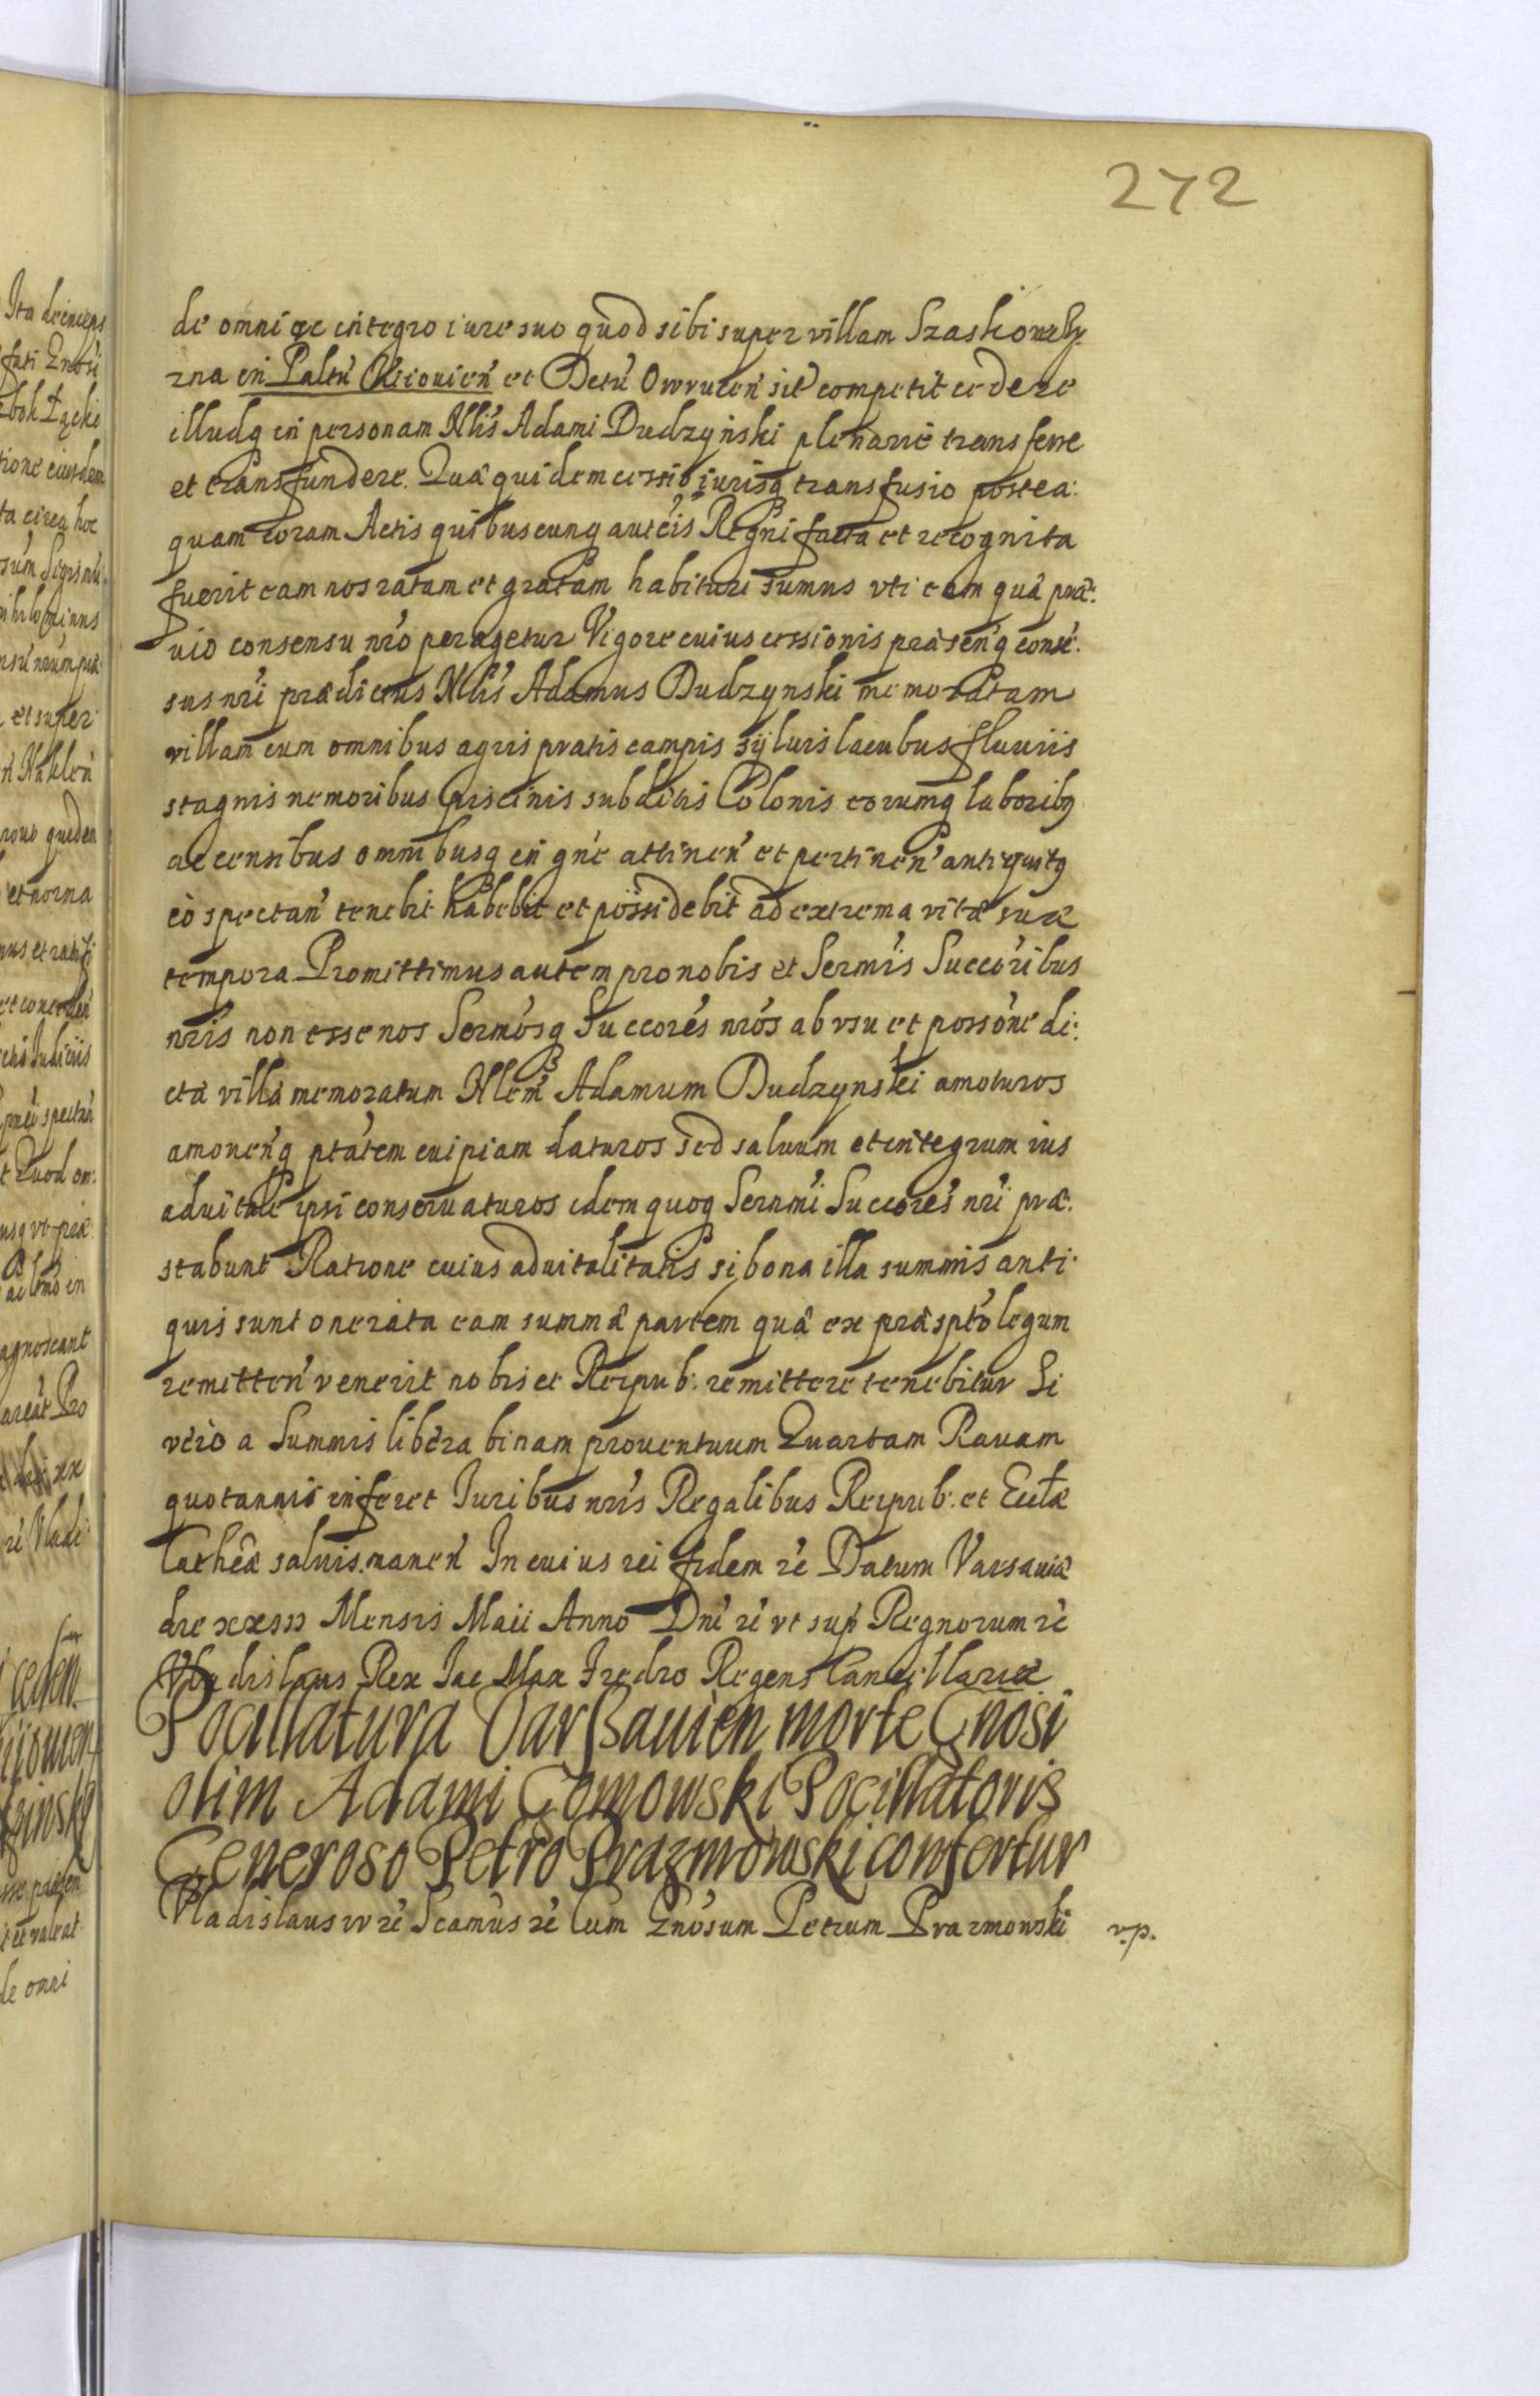 272
de omni ac integro iure suo quod sibi super villam Szaskowsz-
zna in Paltũ Kiiouieñ et Detũ Owruceñ sit competit cedere
illudq in personam Nlis Adami Dudzyński plenarie transferre
et transfundere. Quâ quidem cessio iurisq transfusio postea:
quam coram Actis quibuscunq autcis Regni facta et recognita
fuerit eam nos ratam et gratam habituri sumus vti eam quâ præ:
uio consensu nro peragetur Vigore cuius cessionis præsenq conse:
sus nri prædictus Nlis Adamus Dudzynski memoratam
villam cum omnibus agris pratis campis syluis lacubus fluuiis
stagnis nemoribus piscinis subditis Colonis eorumq laboribq
ac censibus omnibusq in gne attineñ et pertineñ antiquitq
eò spectañ tenebit habebit et possidebit ad extrema vitæ suæ
tempora Promittimus autem pro nobis et Sermis Succoribus
nris non esse nos Sermosq Succores nros ab vsu et possone di:
ctâ villâ memoratum Nlem Adamum Dudzynski amoturos
amouenq ptatem cuipiam daturos sed saluum et integrum ius
aduitale ipsi conseruaturos idem quoq Sernmi Succores nri præ:
stabunt Ratione cuius aduitalitatis si bona illa summis anti:
quis sunt onerata eam summæ partem quâ ex præspto legum
remitteñ venerit nobis et Reipub: remittere tenebitur Si
verò a Summis libera binam prouentuum Quartam Rauam
quotannis inferet Iuribus nris Regalibus Reipub: et Eclæ
Cathcæ saluis maneñ In cuius rei fidem rè Datum Varsauiæ
die Mensis Maii Anno Dni rè vt sup Regnorum rè
Vladislaus Rex Iac Max Fredro Regens Cancellariæ
Pocillatura Varßauień morte Gnosi
olim Adami Gomowski Pocillatoris
Generoso Petro Prazmowski confertur
Vladislaus IV rè Scamus rè Cum Gnosum Petrum Prazmowski v.p.